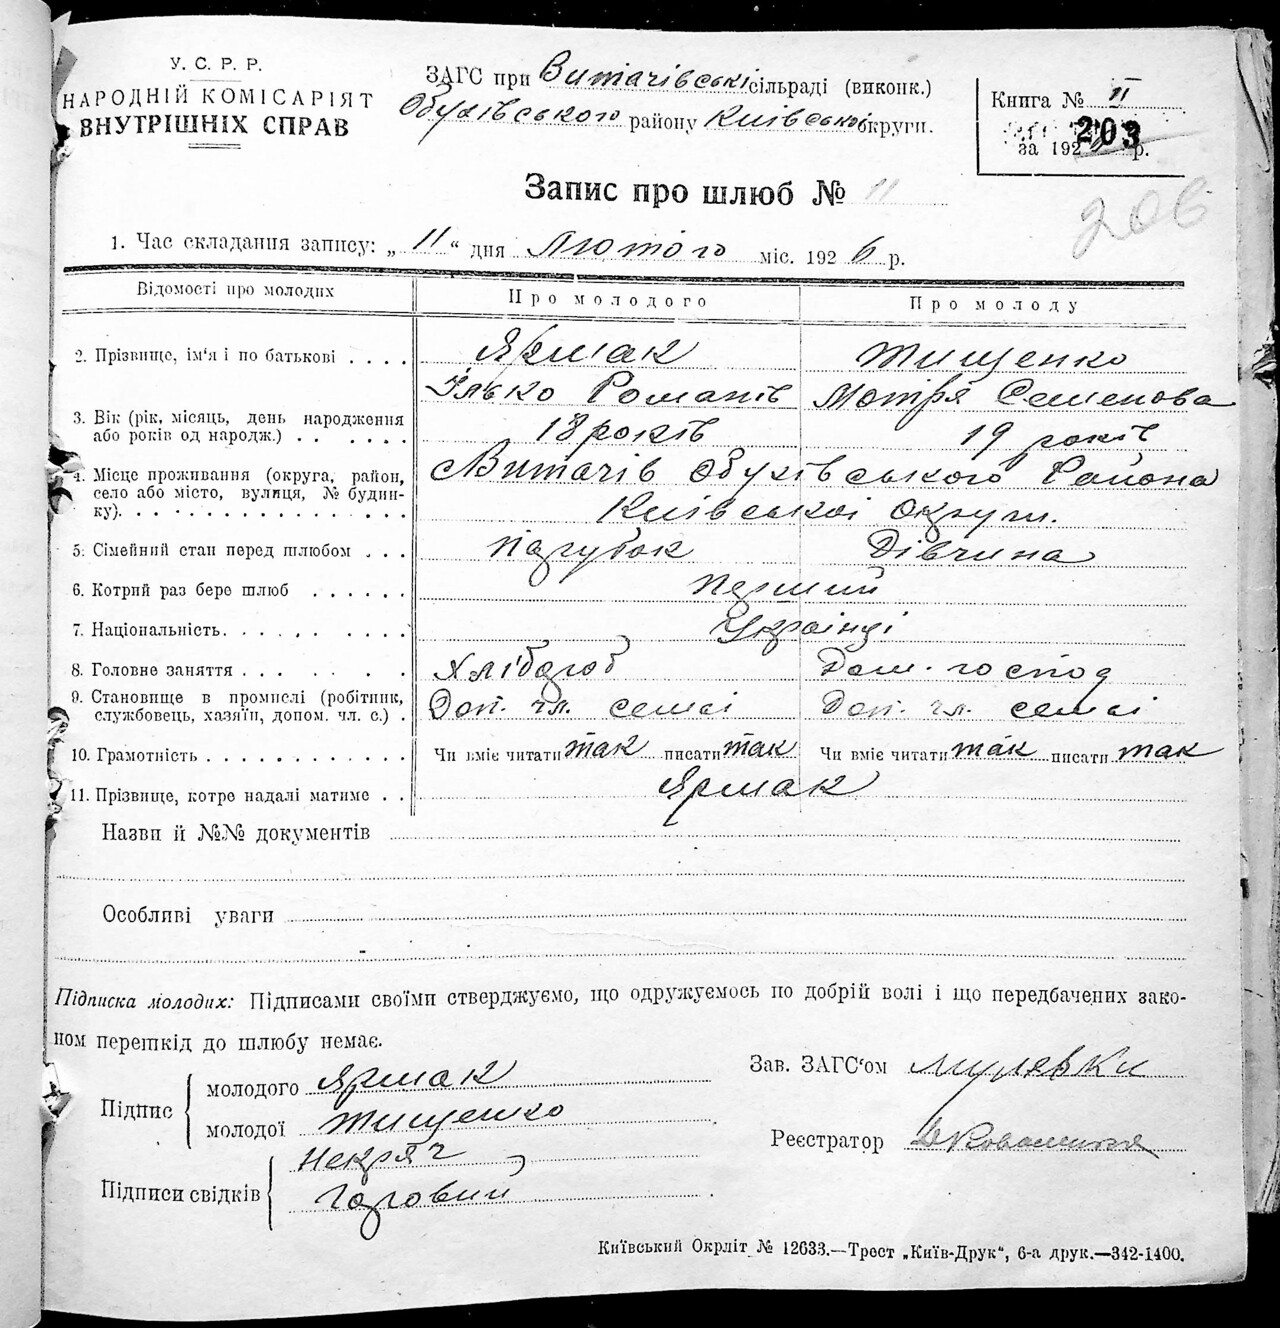 У. С. Р. Р.
НАРОДНІЙ КОМІСАРІЯТ
ВНУТРІШНІХ СПРАВ
ЗАГС при Витачівській сільраді (виконк.)
Обухівського району Київської округи.
Книга № II
203
за 192 р.
206
Запис про шлюб № 11
1. Час складання запису: „ 11 “ дня Лютого міс. 192 6 р.
Відомості про молодих
Про молодого
Про молоду
2. Прізвище, ім'я і по батькові . . . .
Ярмак
Тищенко
Ілько Романів
Мотря Семенова
3. Вік (рік, місяць, день народження
або років од народж.) . . . . . .
18 років
19 років
4. Місце проживання (округа, район,
село або місто, вулиця, № будин-
ку). . . . . . . . . . . . . . . .
Витачів Обухівського Района
Київської Округи.
5. Сімейний стан перед шлюбом . . .
Парубок
Дівчина
6. Котрий раз бере шлюб . . . . . .
Перший
7. Національність. . . . . . . . . .
Українці
8. Головне заняття . . . . . . . . .
Хлібороб
Дом. господ
9. Становище в промислі (робітник,
службовець, хазяїн, допом. чл. с.) .
Доп. чл. семьі
Доп. чл. семьі
10. Грамотність . . . . . . . . . . . .
Чи вміє читати так писати так
Чи вміє читати так писати так
11. Прізвище, котре надалі матиме . .
Ярмак
Назви й №№ документів
Особливі уваги
Підписка молодих: Підписами своїми стверджуємо, що одружуємось по добрій волі і що передбачених зако-
ном перешкід до шлюбу немає.
Підпис
молодого Ярмак
молодої Тищенко
Підписи свідків
Некряч
Гаровий
Зав. ЗАГС'ом
Реєстратор
Київський Окрліт № 12633.—Трест „Київ-Друк“, 6-а друк.—342-1400.